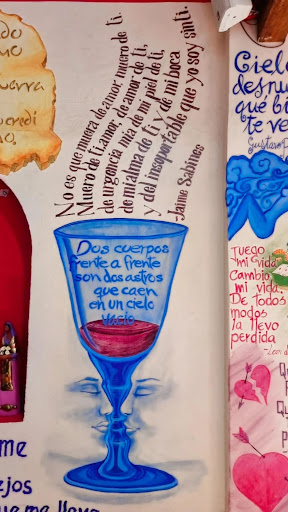 do
mo
uerra
credí
no.
No es que muera de amor, muero de ti.
Muero de ti, amor, de amor de ti,
de urgencia mía de mi piel de ti,
de mi alma de ti y de mi boca
y del insoportable que yo soy sin ti.
-Jaime Sabines
Dos cuerpos
frente a frente
son dos astros
que caen
en un cielo
vacío
me
ejos
ue me lleva
Cielo
desnu
qué bi
te ve
Gustavo
Juego
mi vida
Cambio
mi vida
De todos
modos
la llevo
perdida
-Leon d